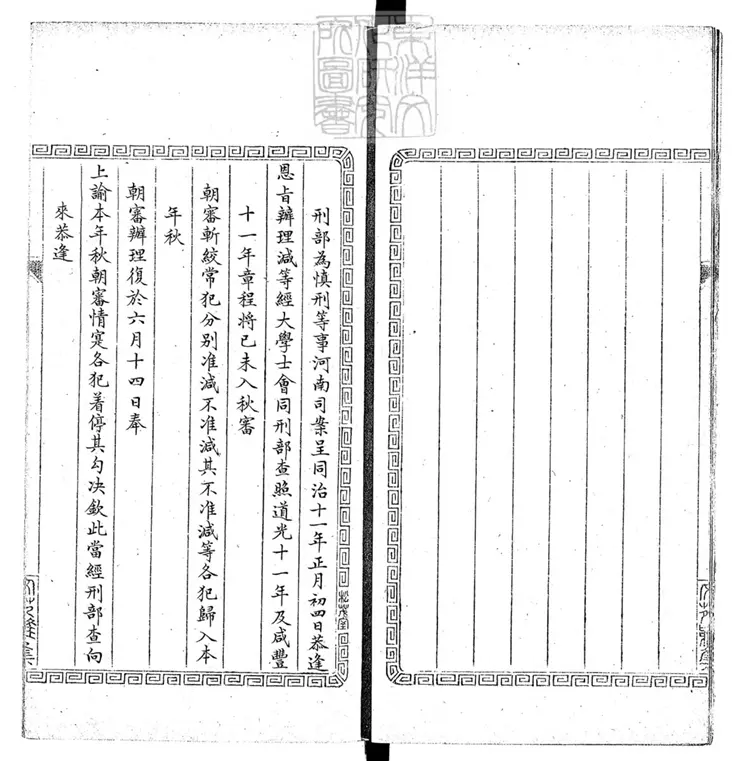 東洋文
化研究
所圖書
刑部為慎刑等事河南司案呈同治十一年正月初四日恭逢
恩旨辦理減等經大學士會同刑部查照道光十一年及咸豐
十一年章程將已未入秋審
朝審斬絞常犯分別准減不准減其不准減等各犯歸入本
年秋
朝審辦理復於六月十四日奉
上諭本年秋朝審情寔各犯着停其勾決欽此當經刑部查向
來恭逢
松茂室